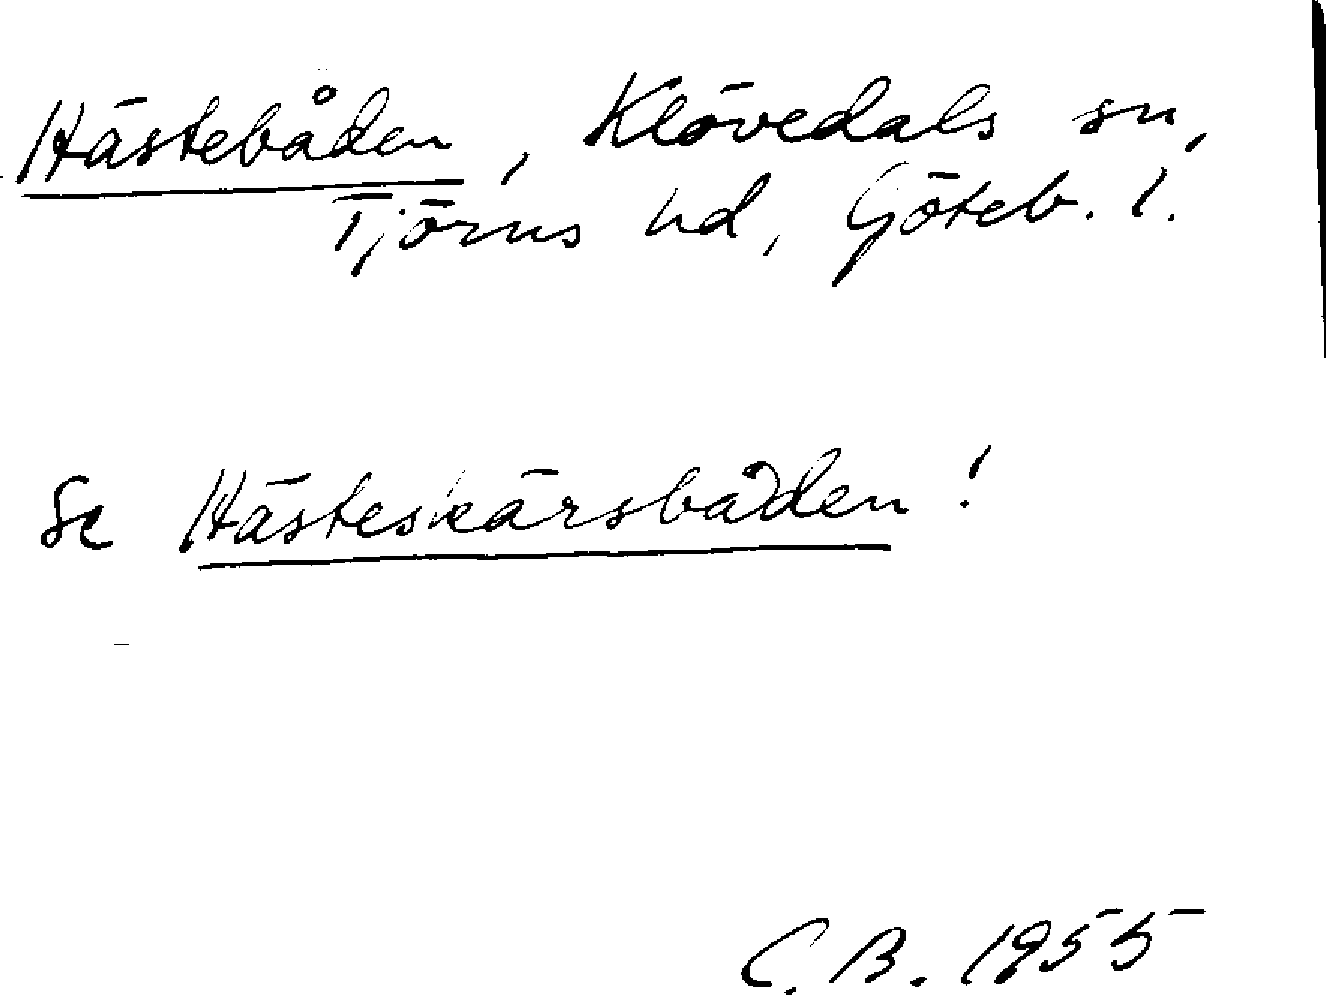 Hästebåden, Klövedals sn,
Tjörns hd, Göteb. l.
Se Hästeskärsbåden!
C. B. 1955